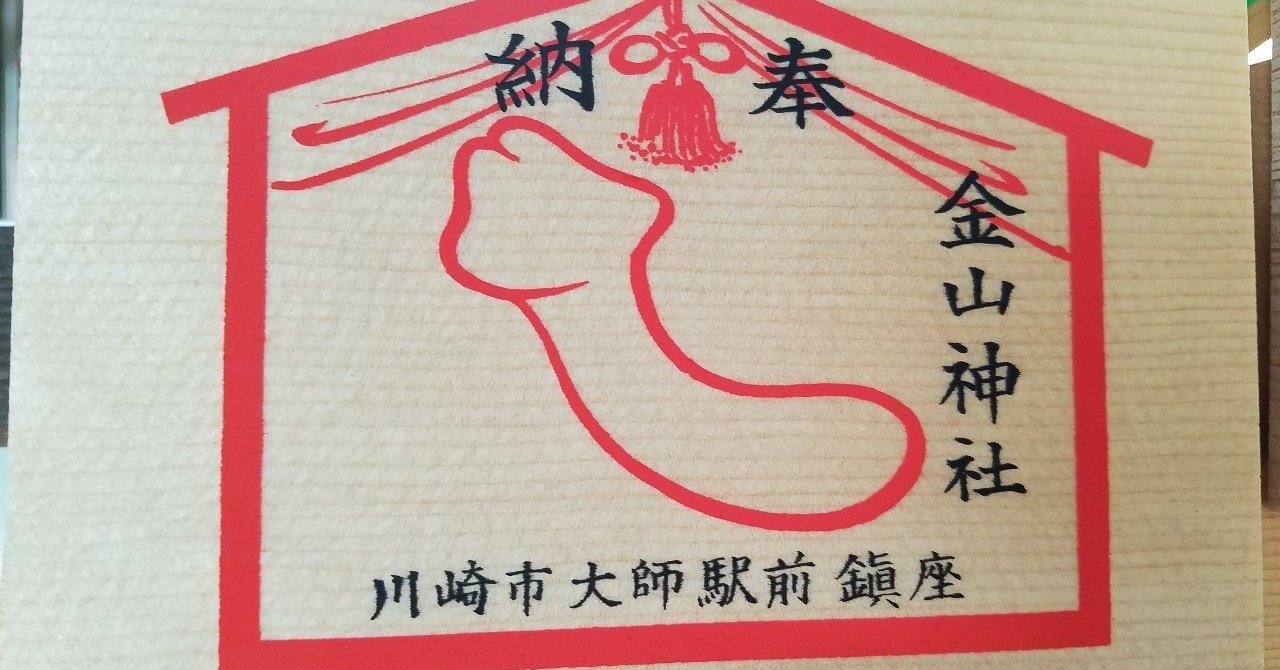 奉納
金山神社
川崎市大師駅前鎭座